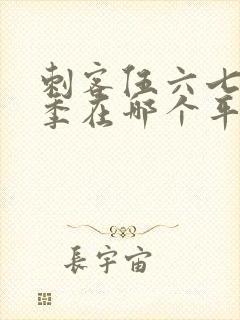 刺客伍六七
季在哪个平
長宇宙